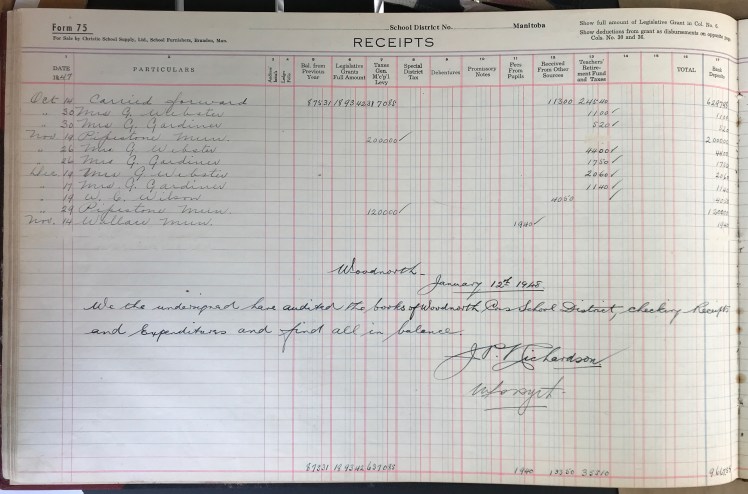 Form 75 School District No. Manitoba Show full amount of Legislative Grant in Col. No. 6.
For Sale by Christie School Supply, Ltd., School Furnishers, Brandon, Man. Show deductions from grant as disbursements on opposite
RECEIPTS Cols. No. 30 and 36.
1 2 3 4 5 6 7 8 9 10 11 12 13 14 15 16 17
DATE 1947 PARTICULARS Bal. from Previous Year Legislative Grants Full Amount Taxes Gen. M'c'p'l Levy Special District Tax Debentures Promissory Notes Fees From Pupils Received From Other Sources Teachers' Retirement Fund and Taxes TOTAL Bank Deposits
Oct 14 Carried forward 87531 11300 24540
" 30 Mrs G. Webster 1100 ✓ 1100
" 30 Mrs G. Gardiner 520 ✓ 520
Nov. 14 Pipestone Mun. 200000 ✓
" 26 Mrs G Webster 4400 ✓ 4400
" 26 Mrs G. Gardiner 1750 ✓
Dec 14 Mrs G Webster 2060 ✓
" 17 Mrs. G. Gardiner 1140 ✓ 1140
" 19 W. C. Wilson 4050 ✓
" 29 Pipestone Mun. 120000 ✓
Nov. 14 Wallace Mun. 1940 ✓ 1940
Woodnorth
January 12th 1948.
We the undersigned have audited the books of Woodnorth Cons School District, checking Receipts
and Expenditures and find all in balance.
J. P. Richardson
87531 1940